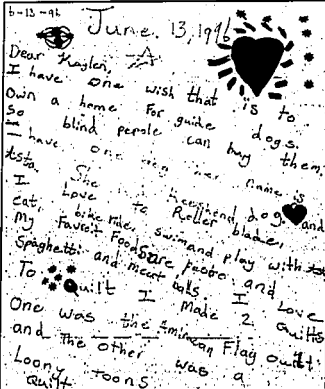 6-13-96
June. 13, 1996
Dear Kaylen,
I have one wish that is to
own a home for guide dogs.
So blind perole can buy them,
I have one her name is
tsta. She dog and
I Love to Roller blade,
eat, bike ride, swim and play with
My favorit Foods are pasta and
Spaghetti and meat balls. I Love
To Quilt I made 2 quilts
One was the Amincan Flag quilt
and the other was a
Loony toons
quilt